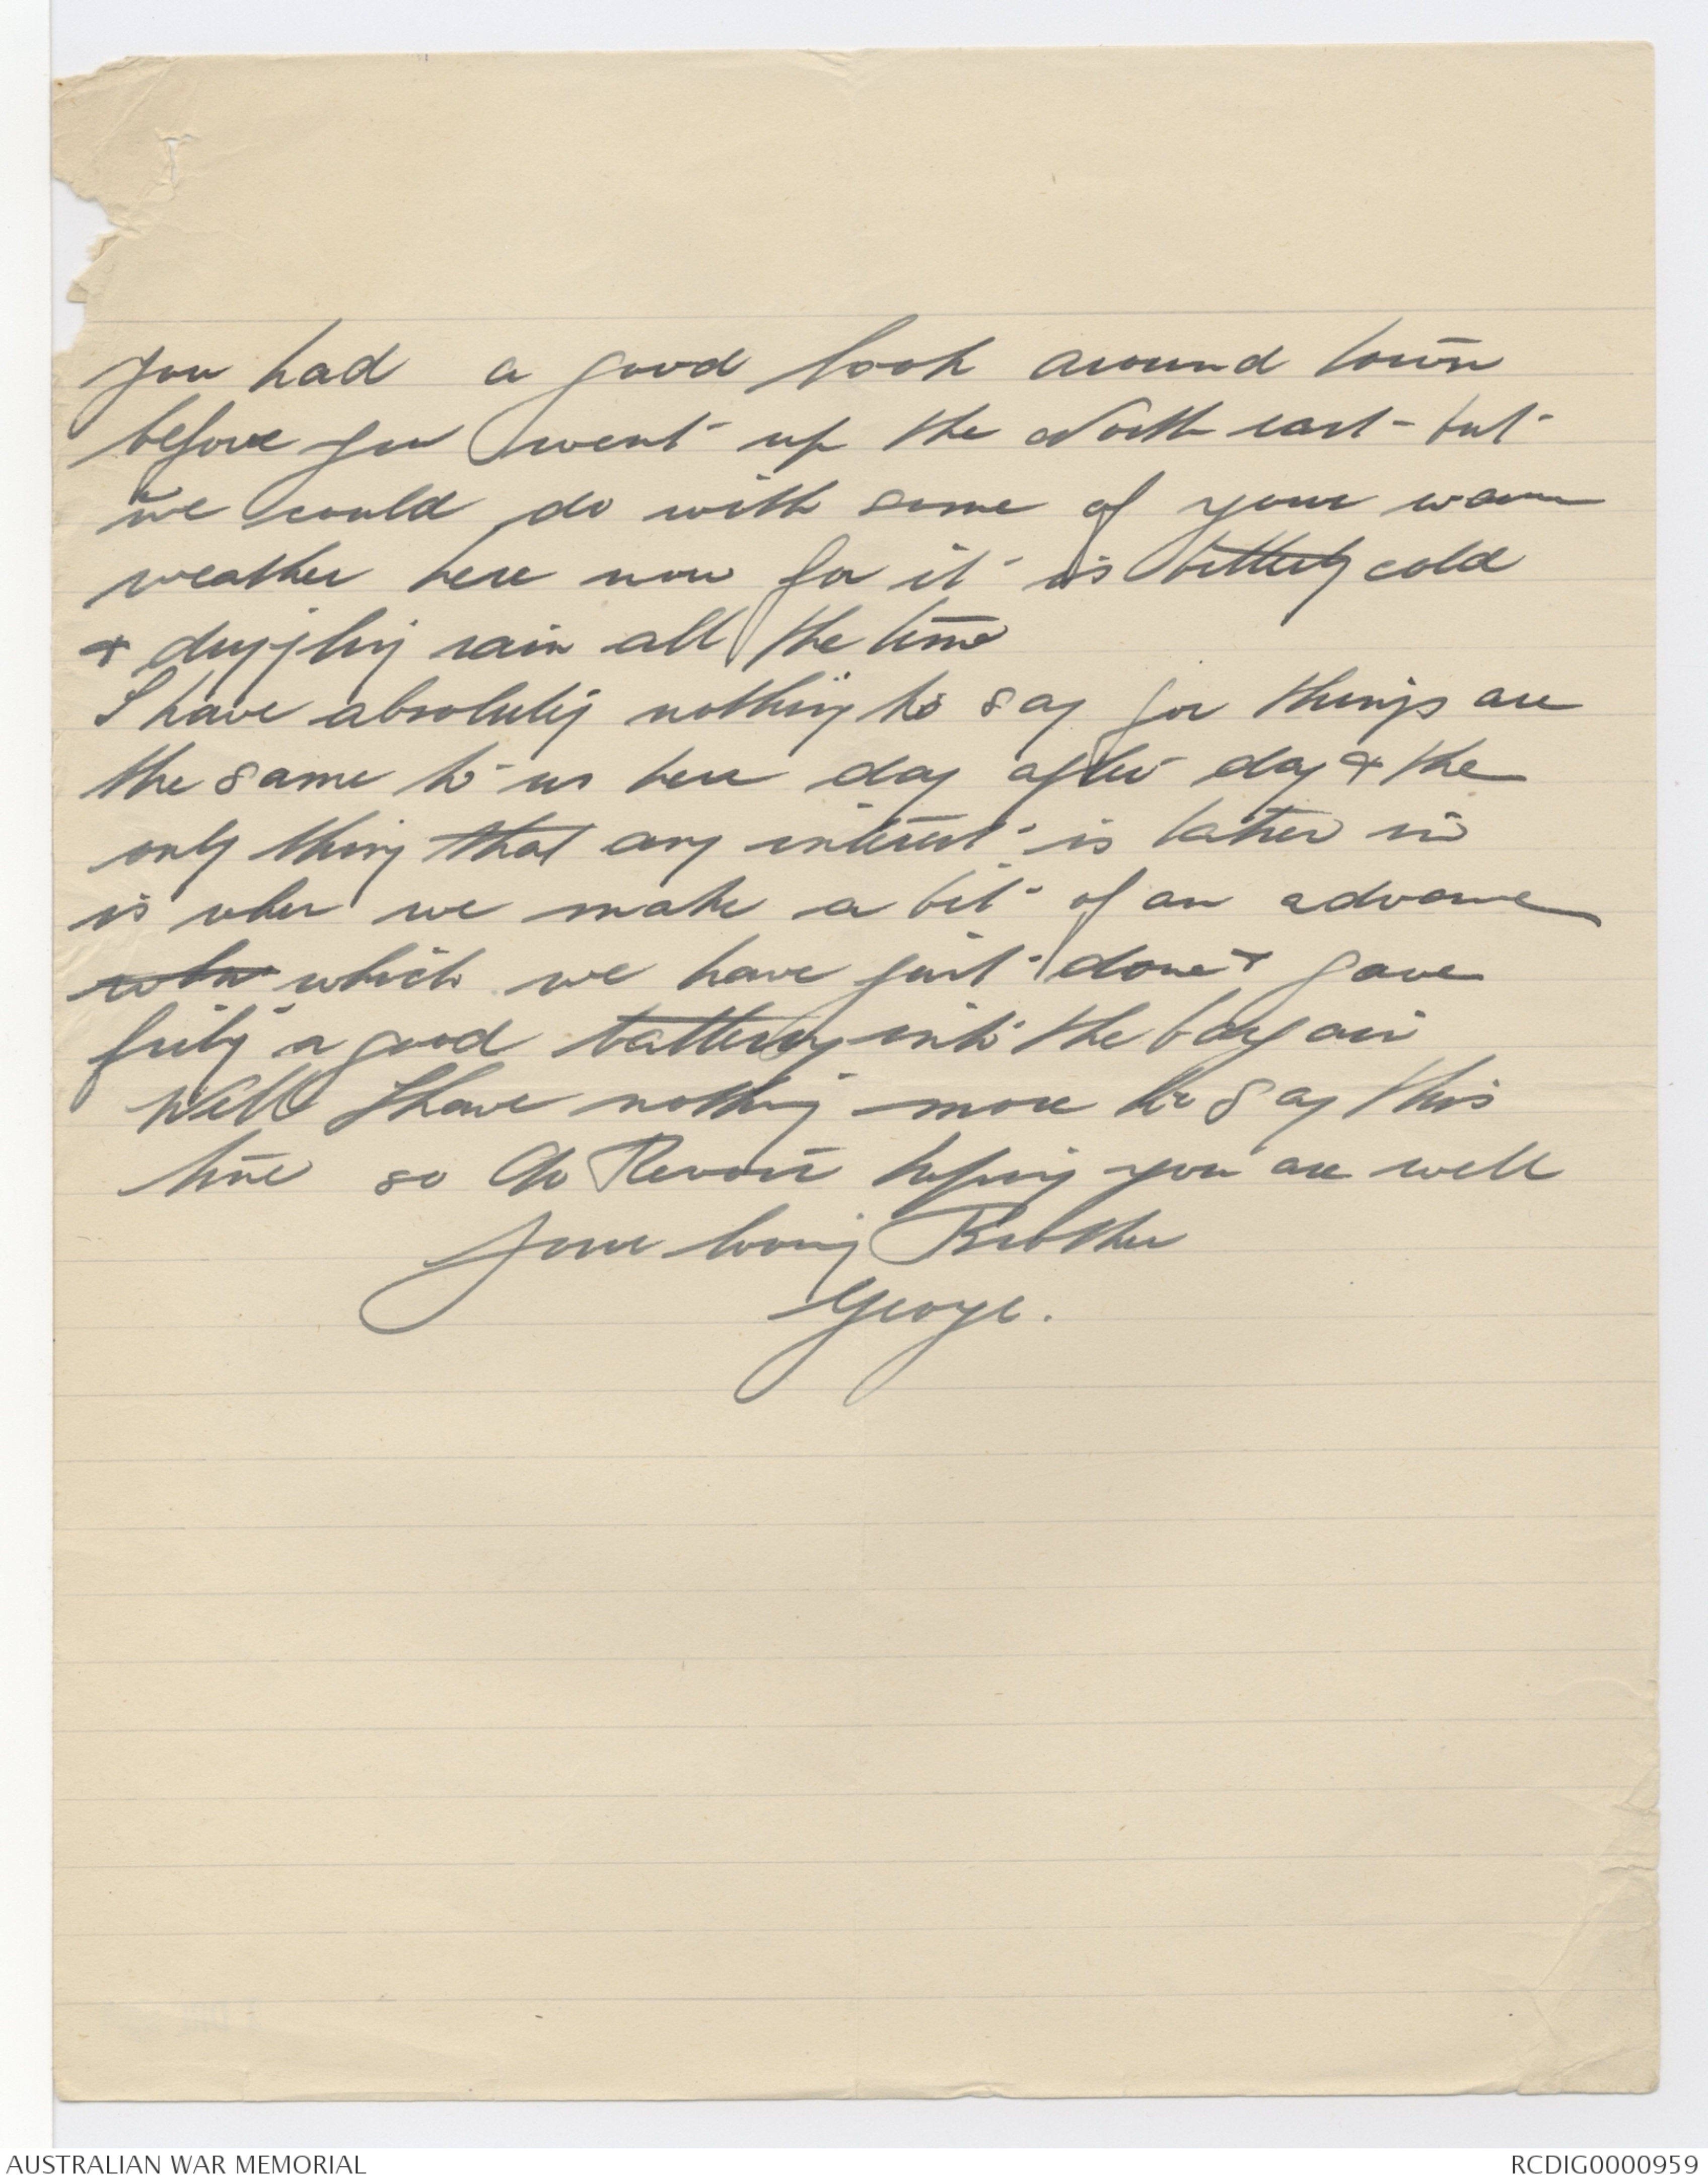 you had a good look around town
before you went up the North east - but
we could do with some of your warm
weather here now for it is bitterly cold
+ drizzling rain all the time
I have absolutely nothing to say for things are
the same to us here day after day + the
only thing that any interest is taken in
is when we make a bit of an advance
when which we have just done + gave
fritz a good battering into the bargain
Well I have nothing more to say this
time so Au Revoir hoping you are well
Your loving Brother
George.
AUSTRALIAN WAR MEMORIAL
RCDIG0000959